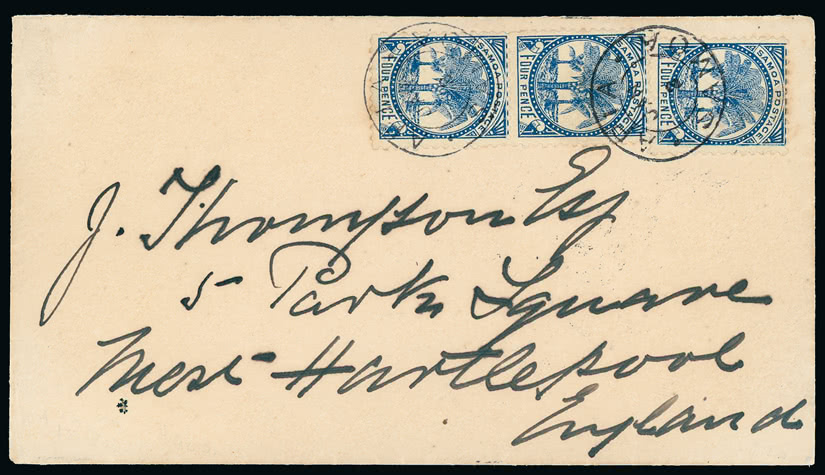 SAMOA POSTAGE
FOUR PENCE
SAMOA POSTAGE
FOUR PENCE
SAMOA POSTAGE
FOUR PENCE
APIA SAMOA
J. Thompson Esq
5 Park Square
West Hartlepool
England